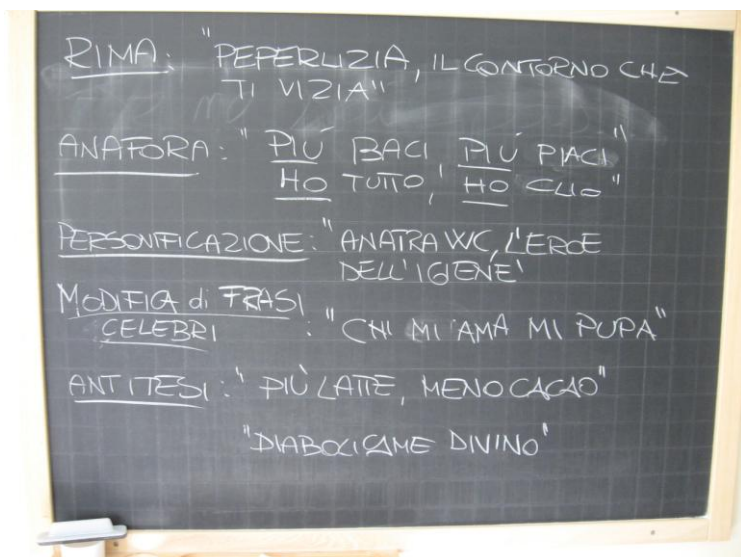 RIMA: "PEPERLIZIA, IL CONTORNO CHE
TI VIZIA"
ANAFORA: "PIÚ BACI, PIÚ PIACI"
HO TUTTO, HO CLIO"
PERSONIFICAZIONE: "ANATRA WC, L'EROE
DELL'IGIENE"
MODIFICA di FRASI
CELEBRI : "CHI MI AMA MI PUPA"
ANTITESI: "PIÙ LATTE, MENO CACAO"
"DIABOLICAME DIVINO"